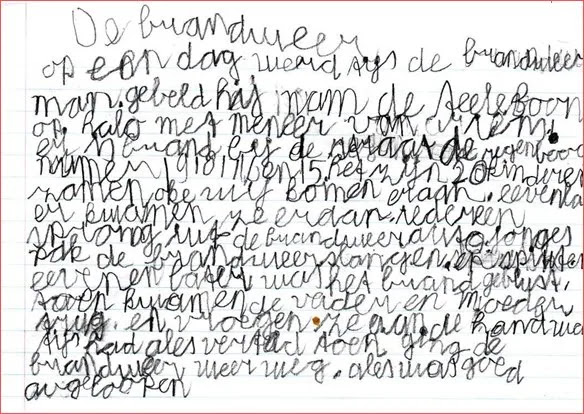 De brandweer
op een dag werd sys de brandweer
man. gebeld hij nam de teeleboon
op. halo met meneer van
er is brand bij de regenboog
numer en 15. het zijn 20 kinderen
ramen oke wij komen eraan. eeven la
er kwamen ze er dan. iedereen
sprong uit de brandweerauto. jonges
pak de brandweerslangen.
eeven later was het brand geblust.
toen kwamen de vader en moeder
trug. en vroegen ze aan de brandwee
sys had ales verteld toen ging de
brandweer weer weg. ales was goed
avgeloopen